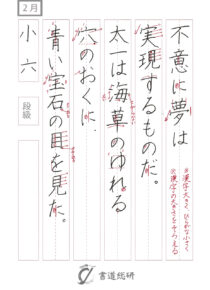 2月
※漢字大きく、ひらがな小さく
※漢字の大きさをそろえる
不意に夢は
実現するものだ。
太一は海草のゆれる
穴のおくに、
青い宝石の目を見た。
小六
段級
書道総研